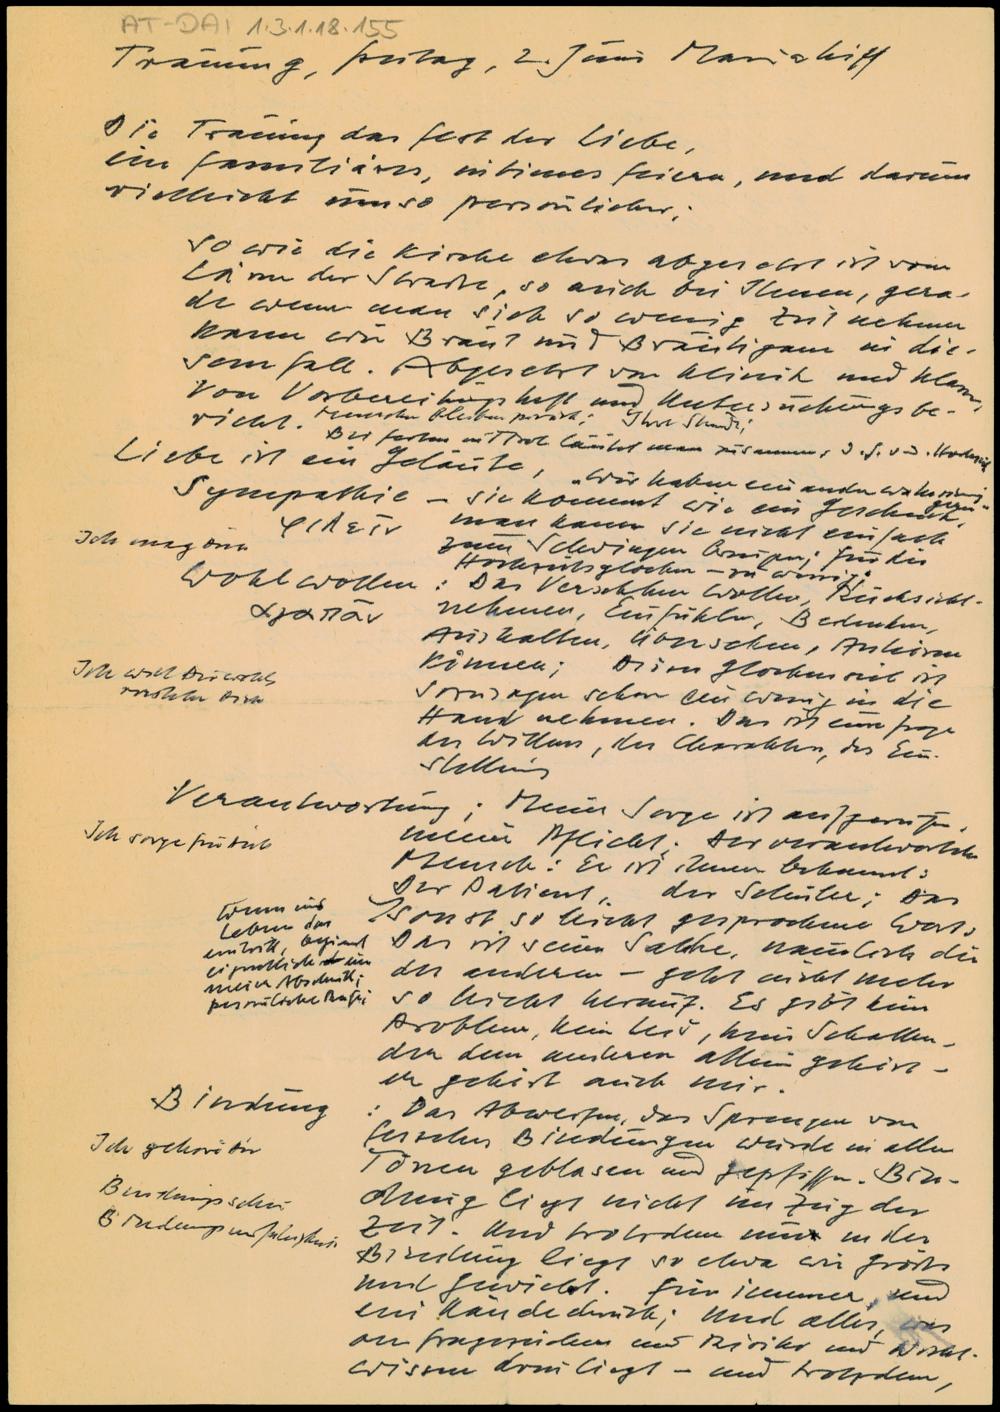 AT-DAI 1.3.1.18.155
Trauung, freitag, 2. Juni Mariahilf
Die Trauung das fest der Liebe,
ein familiäres, intimes feiern, und darum
vielleicht umso persönlicher;
So wie die Kirche etwas abgesetzt ist vom
Lärm der Strasse, so auch bei Ihnen, gera-
de wenn man sich so wenig Zeit nehmen
kann wie Braut und Bräutigam in die-
sem fall. Abgesetzt von Klinik und Klasse,
von Vorbereitungsheft und Untersuchungsbe-
richt.
Bei festen in Tirol läutet man zusammen,
Liebe ist ein Geläute,
"Wir haben einander
Sympathie – sie kommt wie ein Geschenk,
φιλεῖν man kann sie nicht einfach
Ich mag dich
zum Schwingen bringen; für die
Hochzeitsglocken – zu wenig.
Wohlwollen : Das Verstehen wollen, Rücksicht-
ἀγαπᾶν nehmen, Einfühlen, Bedenken,
Aushalten, Übersehen, Anhören
können; Dieses Glockenseil ist
Ich will Dir wohl
verstehe Dich
sozusagen schon ein wenig in die
Hand nehmen. Das ist eine frage
des Willens, des Charakters, der Ein-
stellung
Verantwortung; Meine Sorge ist aufgerufen,
Ich sorge für Dich
meine Pflicht. Der verantwortliche
Mensch: Er ist Ihnen bekannt:
Der Patient, der Schüler; Das
sonst so leicht gesprochene Wort,
Das ist seine Sache, nämlich die
des anderen – geht nicht mehr
so leicht herauf. Es gibt kein
Problem, kein Leid, kein Schatten –
der dem anderen allein gehört –
er gehört auch mir.
Wenn ins
Leben das
eintritt, beginnt
eigentlich ein
neuer Abschnitt;
persönliche Reife
Bindung : Das Abwerfen, das Sprengen von
Ich gehöre dir
Bindungen wurde in allen
Tönen geblasen und gepfiffen. Bin-
Bindungsscheu
Bindungsunfähigkeit
dung liegt nicht im Zug der
Zeit. Und trotzdem nur in der
Bindung liegt so etwas wie Größe
und Gewicht. Für immer, und
ein Händedruck; Und alles, was
an fragezeichen und Risiko und Nicht-
wissen drin liegt – und trotzdem,